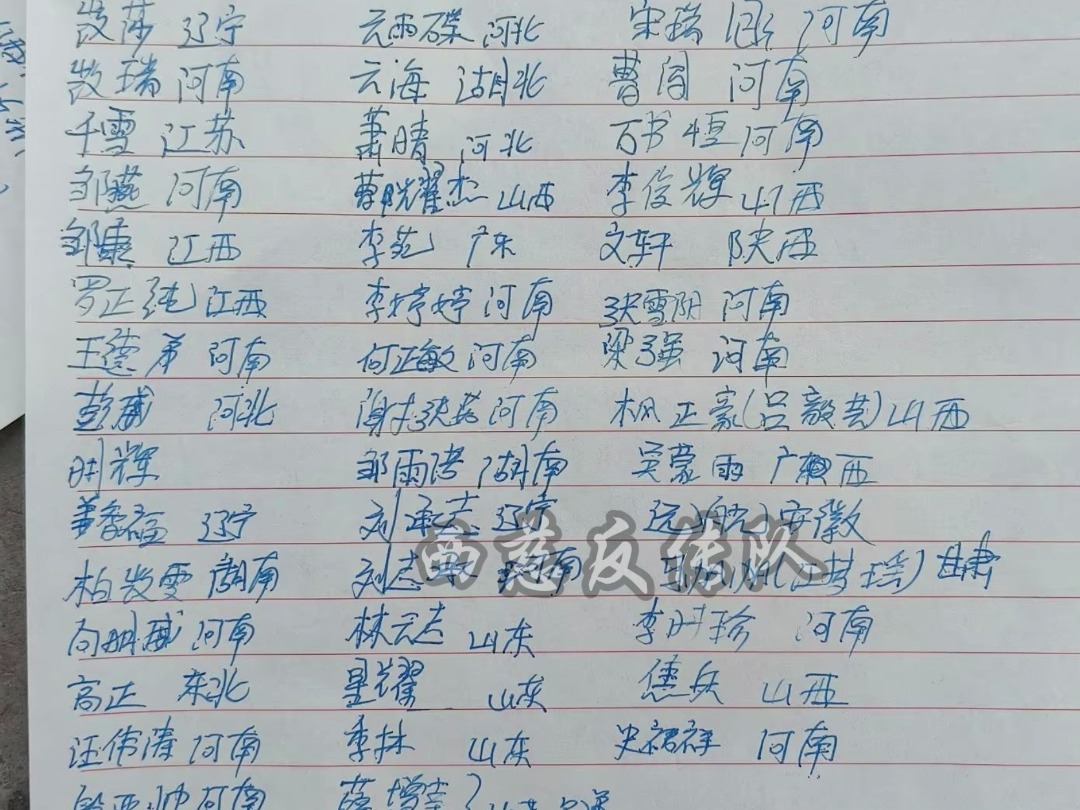 莎 辽宁 云雨碟 河北 宋瑞 河南
瑞 河南 云海 湖北 曹阎 河南
千雪 江苏 萧晴 河北 万书恒 河南
邹燕 河南 曹晓耀杰 山西 李俊辉 山西
邹康 江西 李苑 广东 文轩 陕西
罗正纯 江西 李婷婷 河南 张雪阳 河南
王德弟 河南 何正敏 河南 梁强 河南
彭威 河北 河南 枫正豪(吕毅芸)山西
明辉 邹雨浩 湖南 吴蒙雨 广西
姜香福 辽宁 刘承志 辽宁 远航 安徽
柏雯 湖南 刘志敏 河南 甘肃
向明威 河南 林云志 山东 李时珍 河南
高正 东北 星耀 山东 德兵 山西
汪伟涛 河南 季林 山东 史裙祥 河南
河南 增
西慈反传队